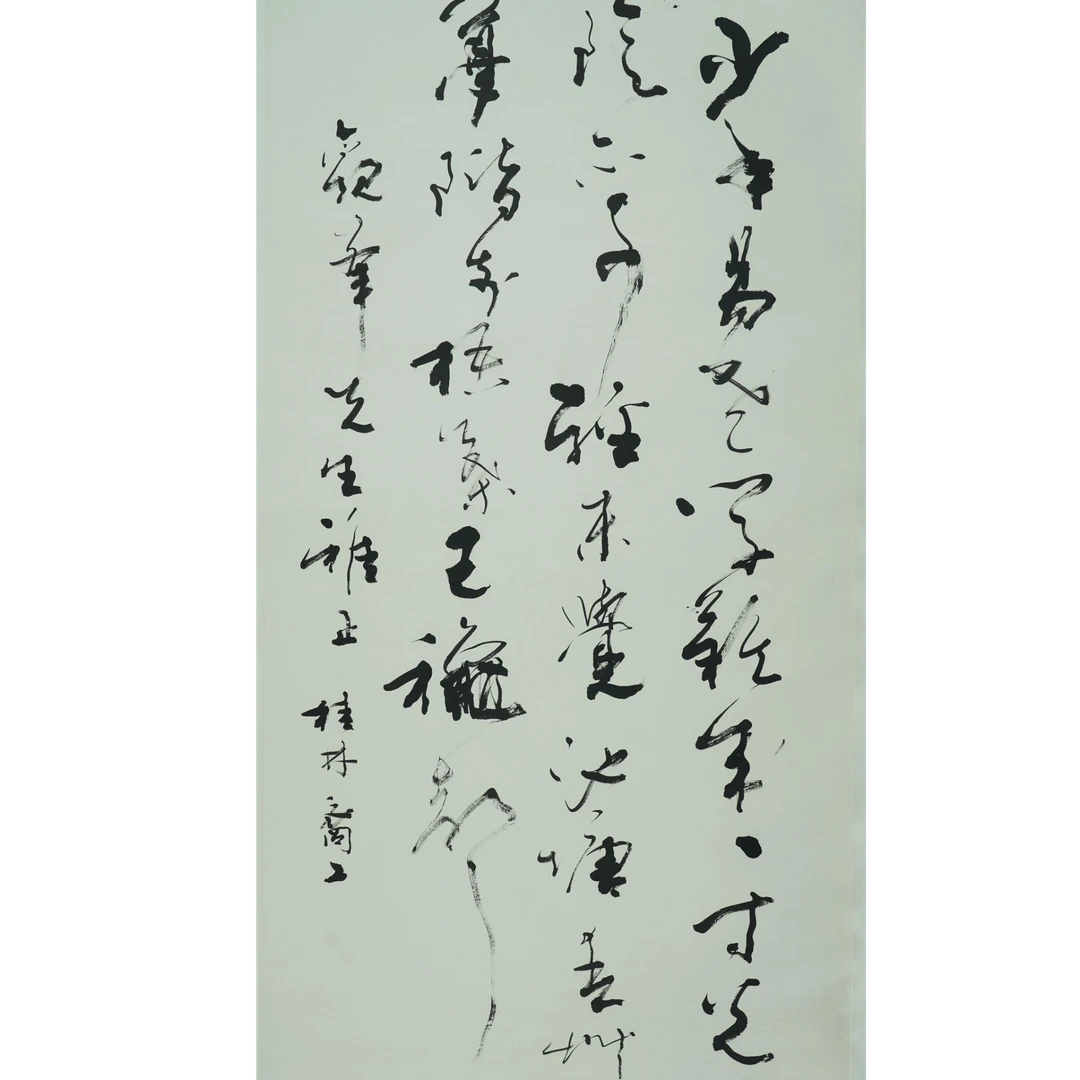 少年易老學難成一寸光
陰不可輕未覺池塘春艸
夢階前梧葉已龝聲
觀華先生雅正 桂林